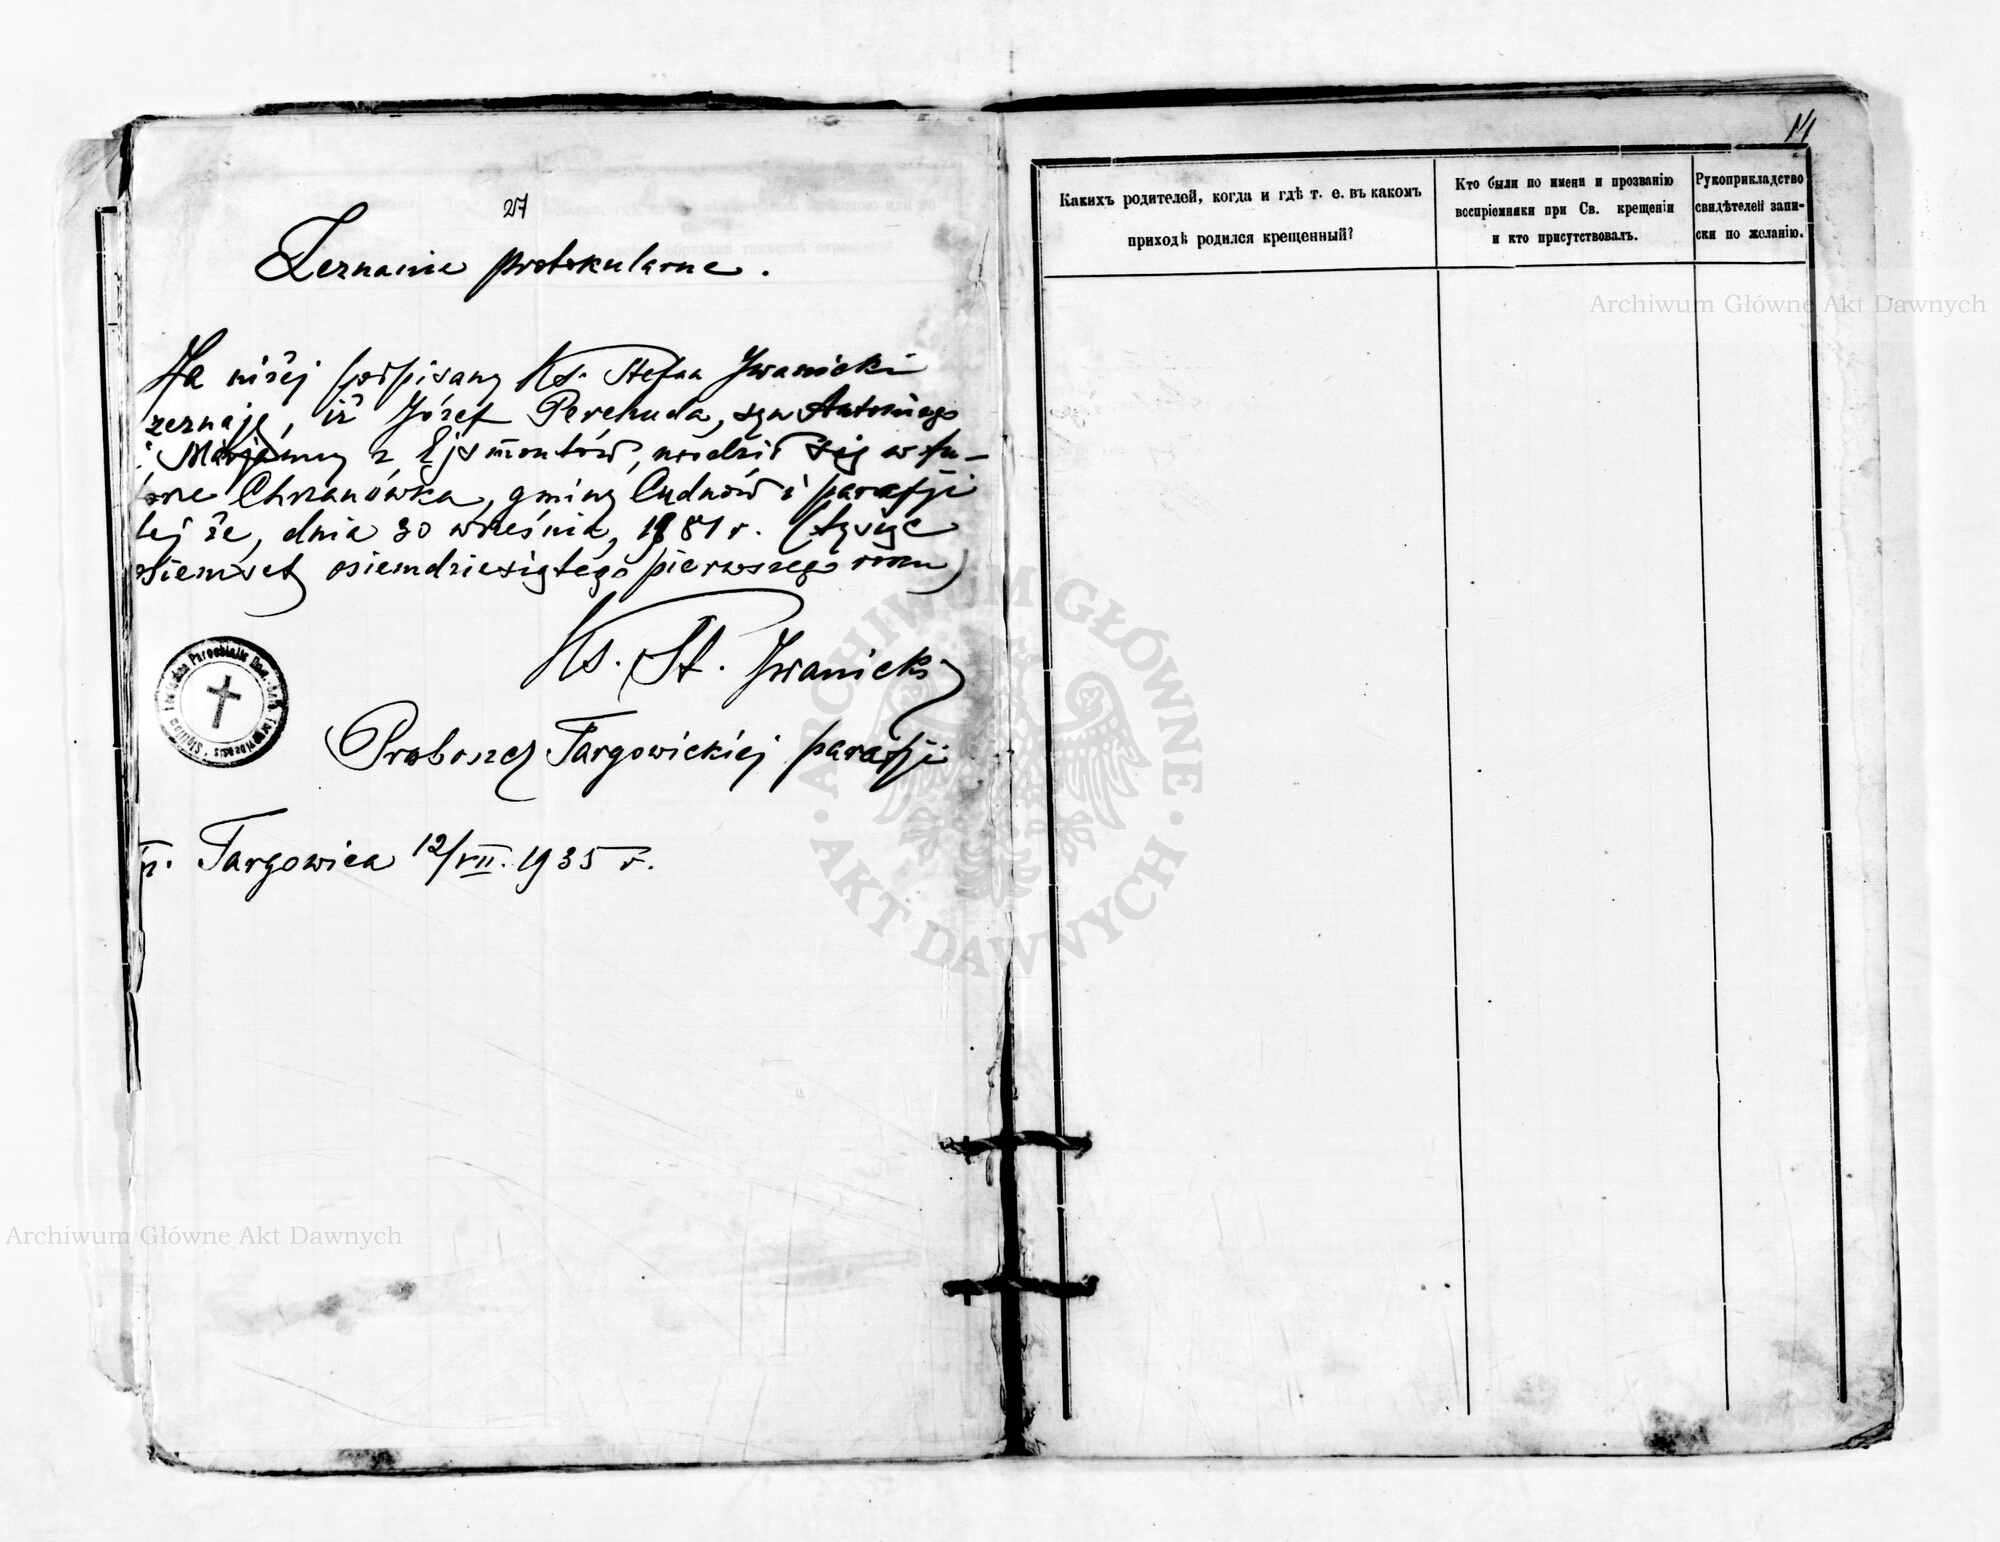 27
Zeznanie protokularne.
Ja niżej podpisany Ks. Stefan Iwanicki
zeznaję, iż Józef Perehuda, syn Antoniego
i Marjanny z Ejsmontów, urodził się w fu-
torze Chrzanówka, gminy Cudnów i parafji
tej że, dnia 30 września, 1881 r. (tysiąc
osiemset osiemdziesiątego pierwszego roku)
Ks. St. Iwanicki
Proboszcz Targowickiej parafji
Targowica 12/VII. 1935 r.
Какихъ родителей, когда и гдѣ т. е. въ какомъ
приходѣ родился крещенный?
Кто были по имени и прозванію
воспріемники при Св. крещеніи
и кто присутствовалъ.
Рукоприкладство
свидѣтелей запи-
ски по желанію.
Archiwum Główne Akt Dawnych
ARCHIWUM GŁÓWNE
AKT DAWNYCH
Archiwum Główne Akt Dawnych